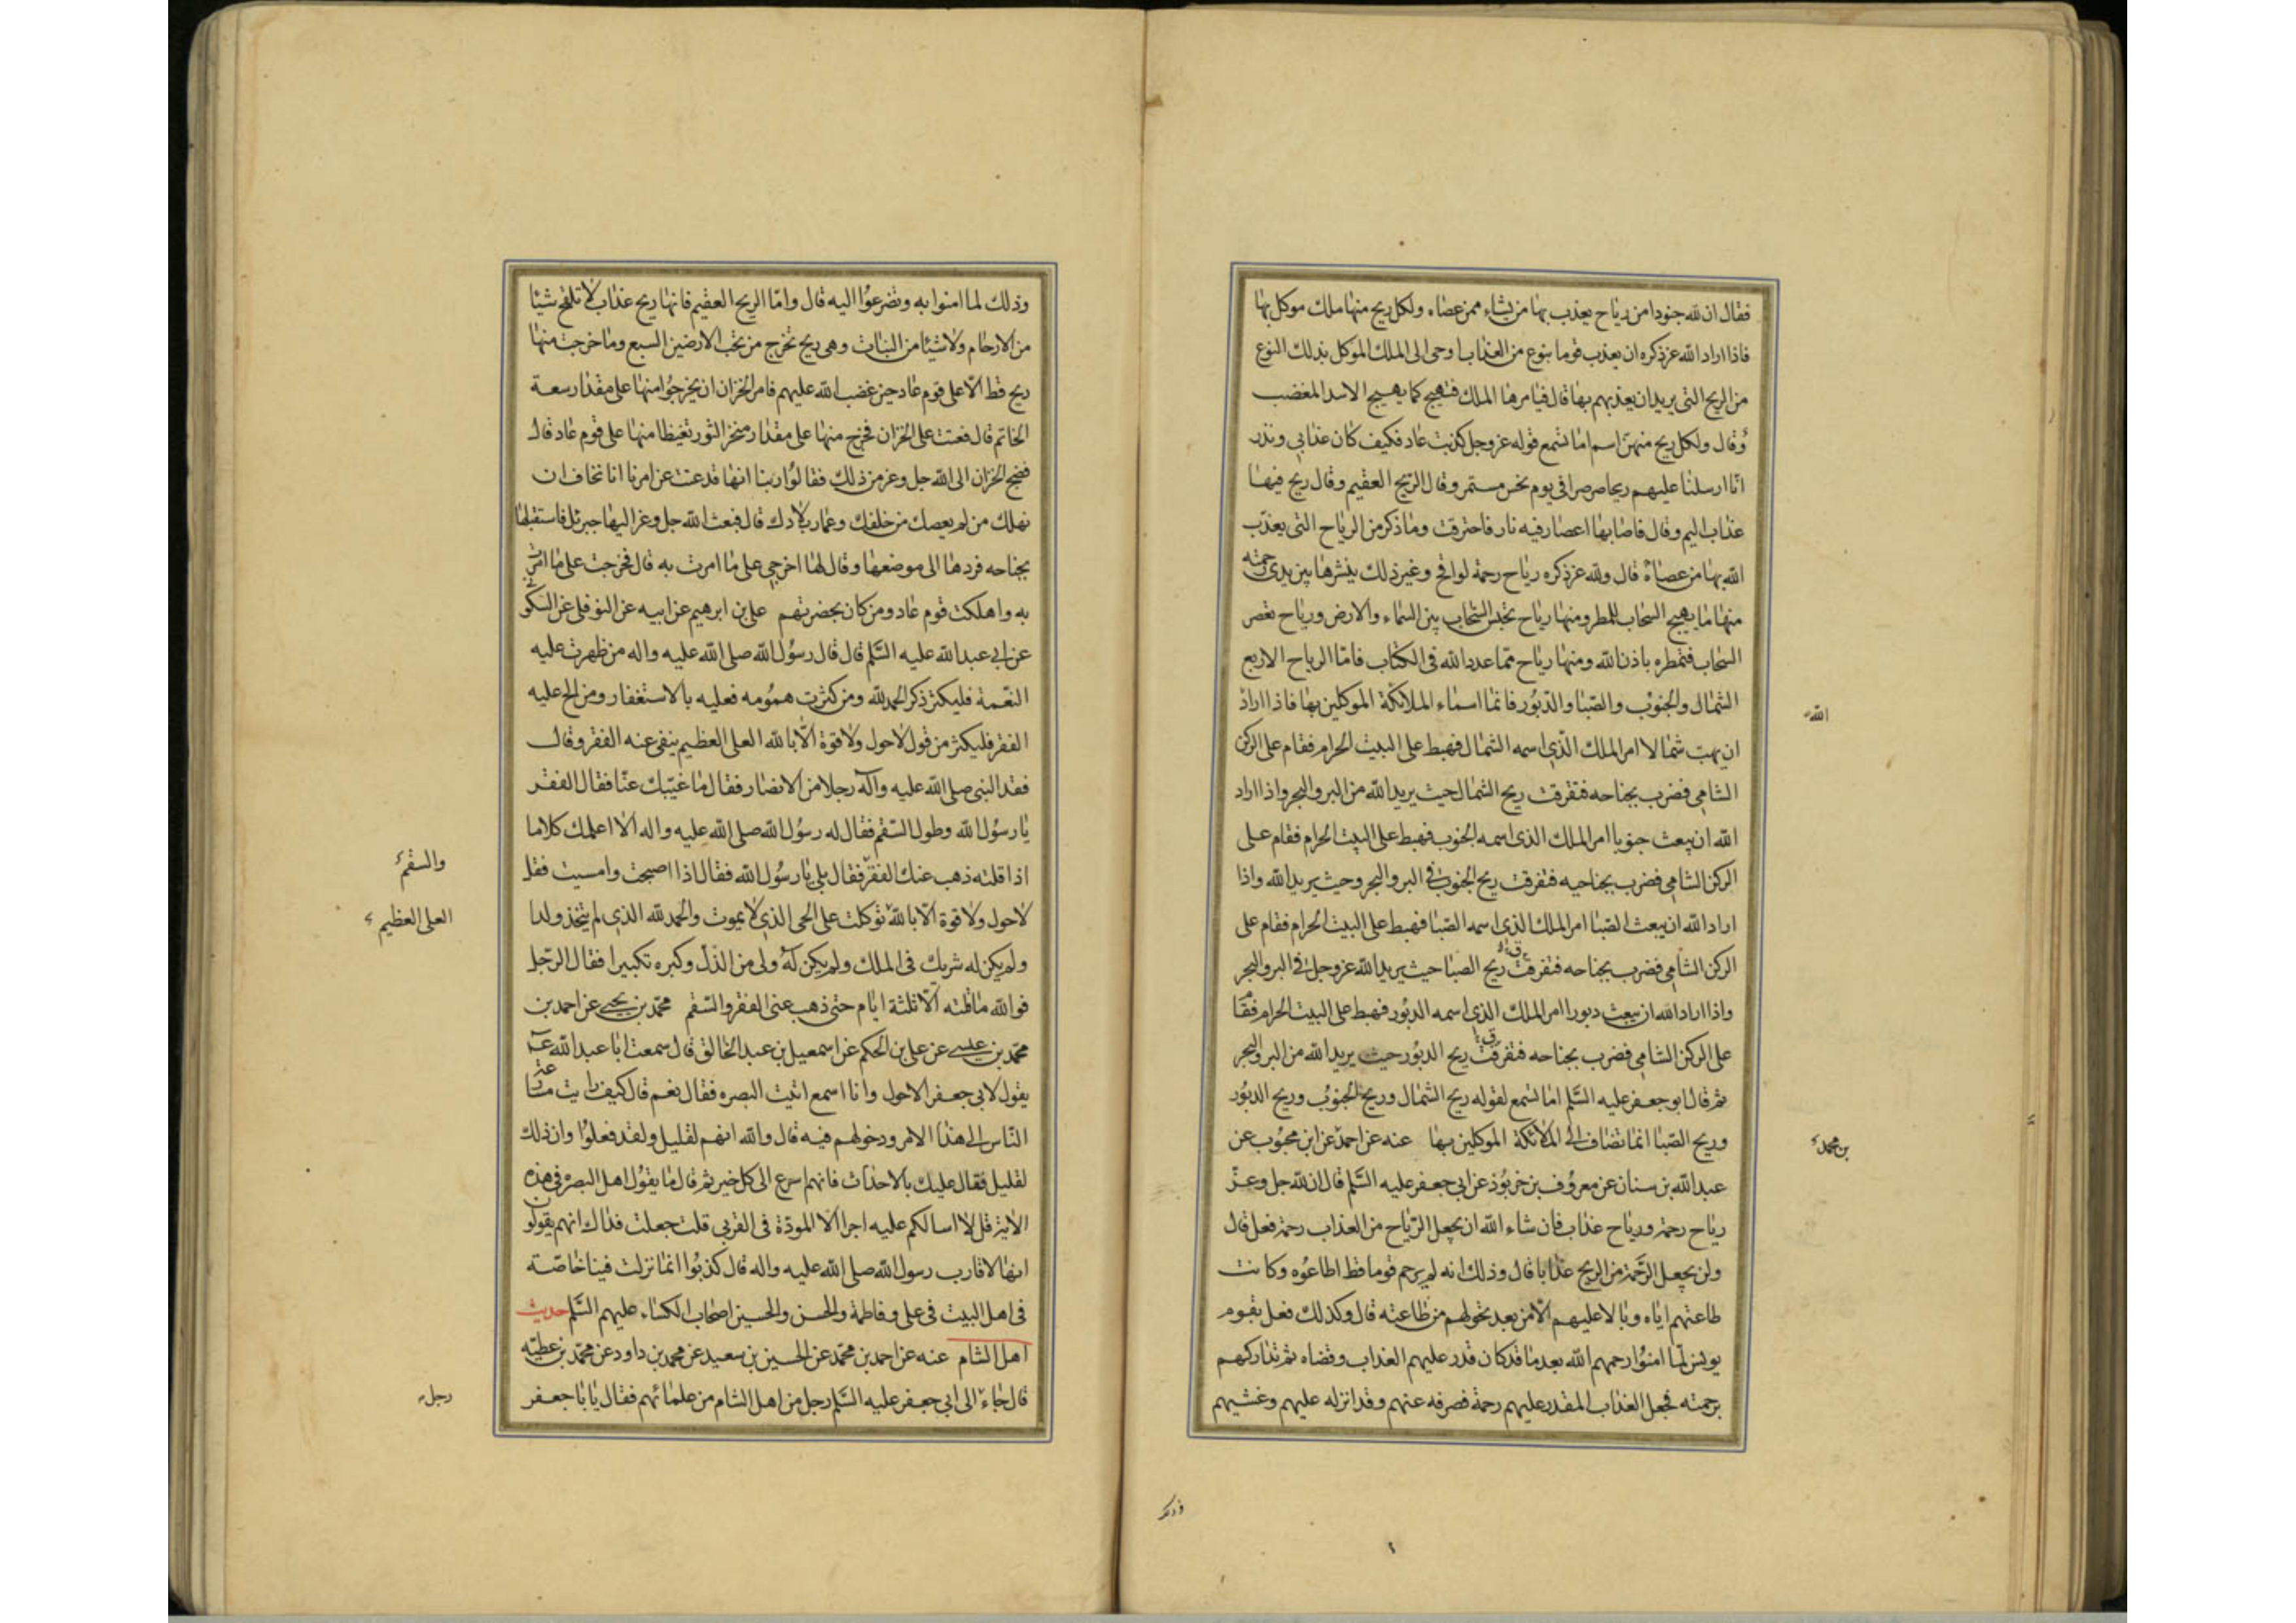 فقال ان لله جنودا من رياح يعذب بها من يشاء ممن عصاه ولكل ريح منها ملك موكل بها
فاذا اراد الله عز ذكره ان يعذب قوما بنوع من العذاب اوحى الى الملك الموكل بذلك النوع
من الريح التى يريد ان يعذبهم بها قال فيامرها الملك فتهيج كما يهيج الاسد المغضب
وقال ولكل ريح منهن اسم اما تسمع قوله عز وجل كذبت عاد فكيف كان عذابى ونذر
انا ارسلنا عليهم ريحا صرصرا فى يوم نحس مستمر وقال الريح العقيم وقال ريح فيها
عذاب اليم وقال فاصابها اعصار فيه نار فاحترقت وما ذكر من الرياح التى يعذب
الله بها من عصاه قال ولله عز ذكره رياح رحمة لواقح وغير ذلك ينشرها بين يدى رحمته
منها ما يهيج السحاب للمطر ومنها رياح تحبس السحاب بين السماء والارض ورياح تعصر
السحاب فتمطره باذن الله ومنها رياح مما عدد الله فى الكتاب فاما الرياح الاربع
الشمال والجنوب والصبا والدبور فانما اسماء الملائكة الموكلين بها فاذا اراد
الله
ان يهب شمالا امر الملك الذى اسمه الشمال فهبط على البيت الحرام فقام على الركن
الشامى فضرب بجناحه فتفرقت ريح الشمال حيث يريد الله من البر والبحر واذا اراد
الله ان يبعث جنوبا امر الملك الذى اسمه الجنوب فهبط على البيت الحرام فقام على
الركن الشامى فضرب بجناحيه فتفرقت ريح الجنوب فى البر والبحر وحيث يريد الله واذا
اراد الله ان يبعث الصبا امر الملك الذى اسمه الصبا فهبط على البيت الحرام فقام على
الركن الشامى فضرب بجناحه فتفرقت ريح الصبا حيث يريد الله عز وجل فى البر والبحر
واذا اراد الله ان يبعث دبورا امر الملك الذى اسمه الدبور فهبط على البيت الحرام فقام
على الركن الشامى فضرب بجناحه فتفرقت ريح الدبور حيث يريد الله من البر والبحر
ثم قال ابو جعفر عليه السلم اما تسمع لقوله ريح الشمال وريح الجنوب وريح الدبور
وريح الصبا انما تضاف الى الملائكة الموكلين بها عنه عن احمد عن ابن محبوب عن
بن محمد
عبد الله بن سنان عن معروف بن خربوذ عن ابى جعفر عليه السلم قال ان لله جل وعز
رياح رحمة ورياح عذاب فان شاء الله ان يجعل الرياح من العذاب رحمة فعل قال
ولن يجعل الرحمة من الريح عذابا قال وذلك انه لم يرحم قوما قط اطاعوه وكانت
طاعتهم اياه وبالا عليهم الا من بعد تحولهم من طاعته قال وكذلك فعل بقوم
يونس لما امنوا رحمهم الله بعد ما قد كان قدر عليهم العذاب وقضاه ثم تداركهم
برحمته فجعل العذاب المقدر عليهم رحمة فصرفه عنهم وقد انزله عليهم وغشيهم
وذلك لما امنوا به وتضرعوا اليه قال واما الريح العقيم فانها ريح عذاب لا تلقح شيئا
من الارحام ولا شيئا من النبات وهى ريح تخرج من تحت الارضين السبع وما خرجت منها
ريح قط الا على قوم عاد حين غضب الله عليهم فامر الخزان ان يخرجوا منها على مقدار سعة
الخاتم قال فعتت على الخزان فخرج منها على مقدار منخر الثور تغيظا منها على قوم عاد قال
فضج الخزان الى الله جل وعز من ذلك فقالوا ربنا انها قد عتت عن امرنا انا نخاف ان
تهلك من لم يعصك من خلقك وعمار بلادك قال فبعث الله جل وعز اليها جبرئل فاستقبلها
بجناحه فردها الى موضعها وقال لها اخرجى على ما امرت به قال فخرجت على ما امرت
به واهلكت قوم عاد ومن كان بحضرتهم على بن ابرهيم عن ابيه عن النوفلى عن السكونى
عن ابى عبد الله عليه السلم قال قال رسول الله صلى الله عليه واله من ظهرت عليه
النعمة فليكثر ذكر الحمد لله ومن كثرت همومه فعليه بالاستغفار ومن الح عليه
الفقر فليكثر من قول لاحول ولا قوة الا بالله العلى العظيم ينفى عنه الفقر وقال
فقد النبى صلى الله عليه وآله رجلا من الانصار فقال ما غيبك عنا فقال الفقر
يا رسول الله وطول السقم فقال له رسول الله صلى الله عليه واله الا اعلمك كلاما
اذا قلته ذهب عنك الفقر فقال بلى يا رسول الله فقال اذا اصبحت وامسيت فقل
والسقم
لاحول ولا قوة الا بالله توكلت على الحى الذى لا يموت والحمد لله الذى لم يتخذ ولدا
العلى العظيم
ولم يكن له شريك فى الملك ولم يكن له ولى من الذل وكبره تكبيرا فقال الرجل
فوالله ما قلته الا ثلثة ايام حتى ذهب عنى الفقر والسقم محمد بن يحيى عن احمد بن
محمد بن عيسى عن على بن الحكم عن اسمعيل بن عبد الخالق قال سمعت ابا عبد الله ع
يقول لابى جعفر الاحول وانا اسمع اتيت البصره فقال نعم قال كيف رايت مسارعة
الناس الى هذا الامر ودخولهم فيه قال والله انهم لقليل ولقد فعلوا وان ذلك
لقليل فقال عليك بالاحداث فانهم اسرع الى كل خير ثم قال ما يقول اهل البصره فى هذه
الاية قل لا اسالكم عليه اجرا الا المودة فى القربى قلت جعلت فداك انهم يقولون
انها لاقارب رسول الله صلى الله عليه واله قال كذبوا انما نزلت فينا خاصة
فى اهل البيت فى على وفاطمة والحسن والحسين اصحاب الكساء عليهم السلم حديث
اهل الشام عنه عن احمد بن محمد عن الحسين بن سعيد عن محمد بن داود عن محمد بن عطيه
قال جاء الى ابى جعفر عليه السلم رجل من اهل الشام من علمائهم فقال يا با جعفر
رجل